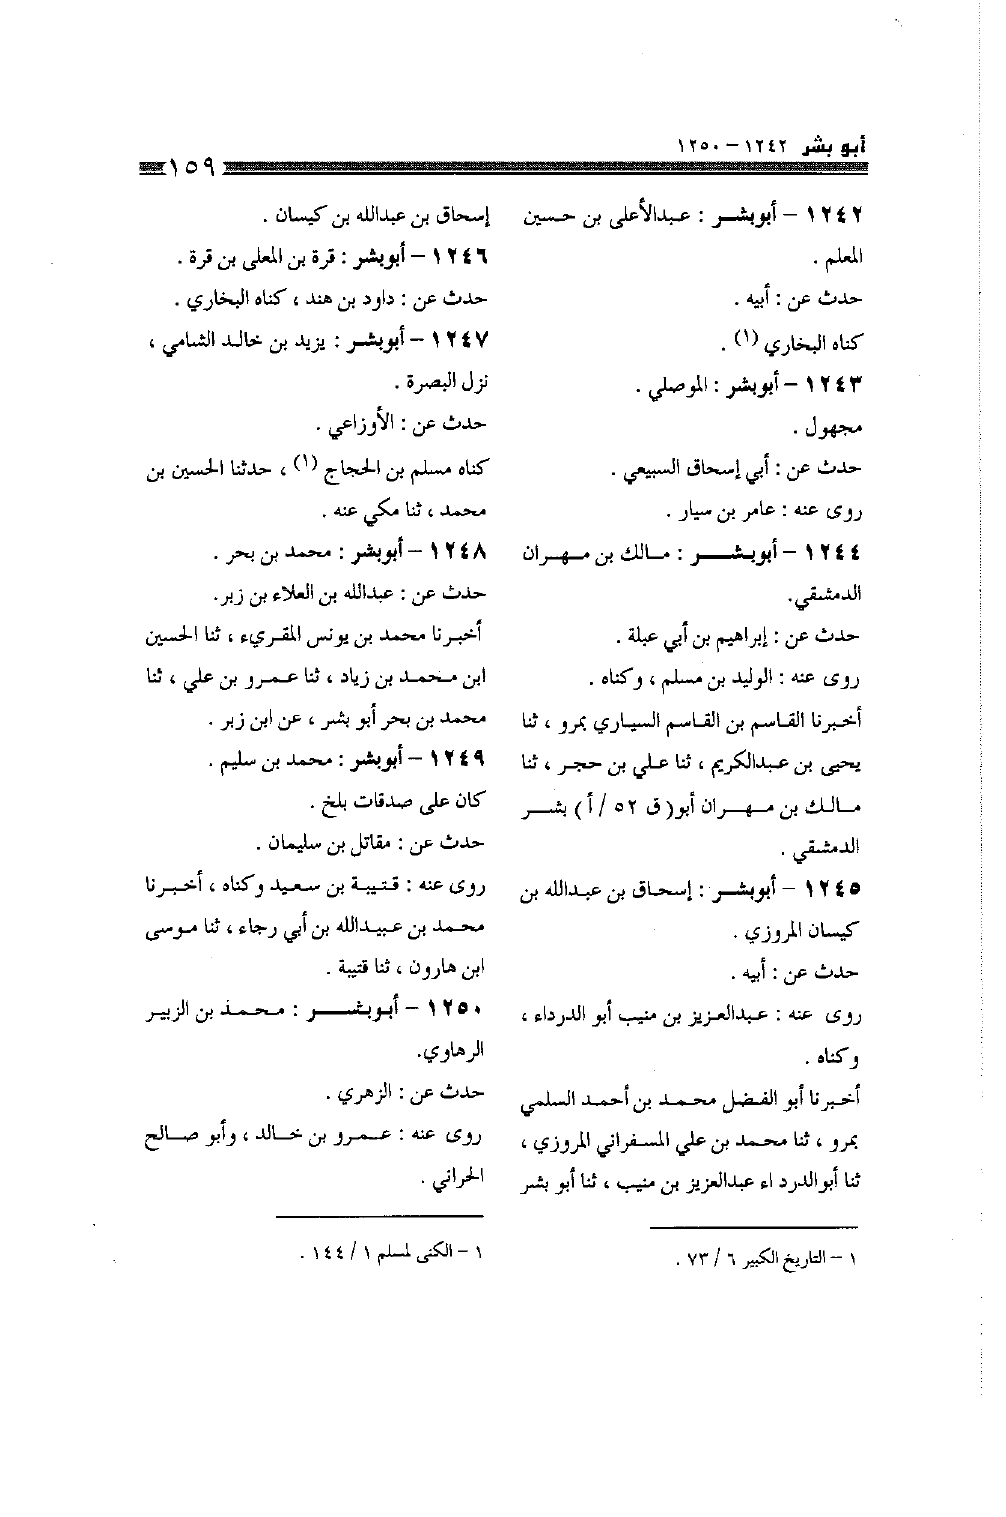 أبو بشر ١٢٤٢ – ١٢٥٠
١٥٩
١٢٤٢ – أبوبشر : عبدالأعلى بن حسين
المعلم .
حدث عن : أبيه .
كناه البخاري (١) .
١٢٤٣ – أبوبشر : الموصلي .
مجهول .
حدث عن : أبي إسحاق السبيعي .
روى عنه : عامر بن سيار .
١٢٤٤ – أبوبشر : مالك بن مهران
الدمشقي.
حدث عن : إبراهيم بن أبي عبلة .
روى عنه : الوليد بن مسلم ، وكناه .
أخبرنا القاسم بن القاسم السياري بمرو ، ثنا
يحيى بن عبدالكريم ، ثنا علي بن حجر ، ثنا
مالك بن مهران أبو( ق ٥٢ /أ ) بشر
الدمشقي .
١٢٤٥ – أبوبشر : إسحاق بن عبدالله بن
كيسان المروزي .
حدث عن : أبيه .
روى عنه : عبدالعزيز بن منيب أبو الدرداء ،
وكناه .
أخبرنا أبو الفضل محمد بن أحمد السلمي
بمرو ، ثنا محمد بن علي المسفراني المروزي ،
ثنا أبوالدرد اء عبدالعزيز بن منيب ، ثنا أبو بشر
١ – التاريخ الكبير ٦ / ٧٣ .
إسحاق بن عبدالله بن كيسان .
١٢٤٦ – أبوبشر : قرة بن المعلى بن قرة .
حدث عن : داود بن هند ، كناه البخاري .
١٢٤٧ – أبوبشر : يزيد بن خالد الشامي ،
نزل البصرة .
حدث عن : الأوزاعي .
كناه مسلم بن الحجاج (١) ، حدثنا الحسين بن
محمد ، ثنا مكي عنه .
١٢٤٨ – أبوبشر : محمد بن بحر .
حدث عن : عبدالله بن العلاء بن زبر.
أخبرنا محمد بن يونس المقريء ، ثنا الحسين
ابن محمد بن زياد ، ثنا عمرو بن علي ، ثنا
محمد بن بحر أبو بشر ، عن ابن زبر .
١٢٤٩ – أبوبشر : محمد بن سليم .
كان على صدقات بلخ .
حدث عن : مقاتل بن سليمان .
روى عنه : قتيبة بن سعيد وكناه ، أخبرنا
محمد بن عبيدالله بن أبي رجاء ، ثنا موسى
ابن هارون ، ثنا قتيبة .
١٢٥٠ – أبوبشر : محمد بن الزبير
الرهاوي.
حدث عن : الزهري .
روى عنه : عمرو بن خالد ، وأبو صالح
الحراني .
١ – الكنى لمسلم ١ / ١٤٤ .